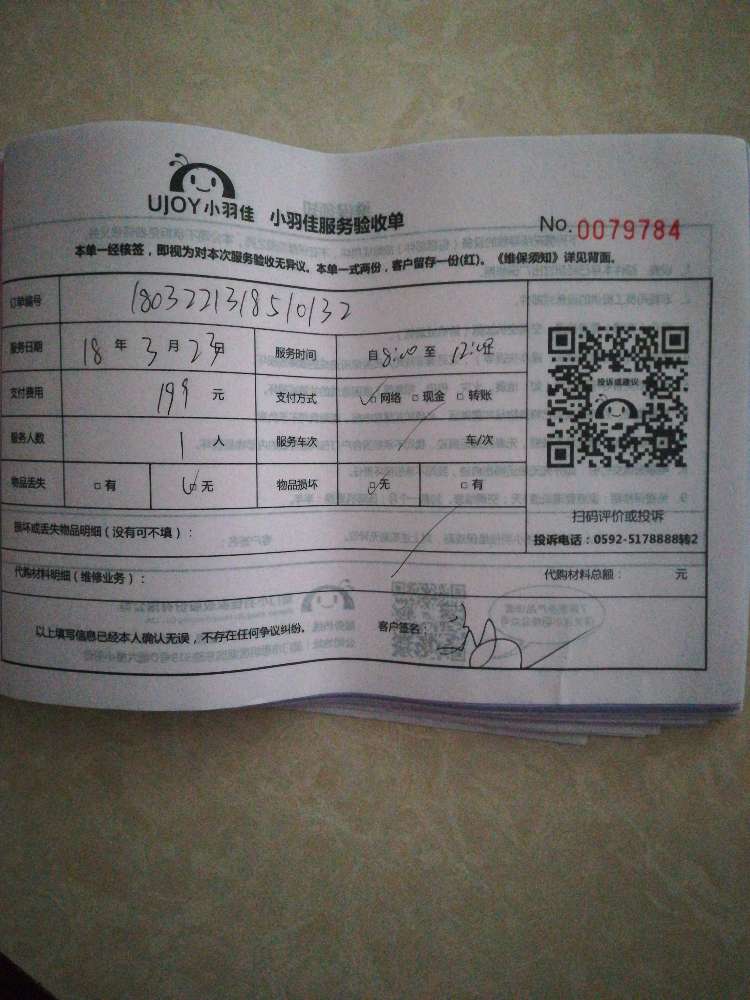 UJOY小羽佳 小羽佳服务验收单
No. 0079784
本单一经核签，即视为对本次服务验收无异议。本单一式两份，客户留存一份(红)。《维保须知》详见背面。
订单编号 1803221318510132
服务日期 18 年 3 月 23 日 服务时间 自 8:00 至 12:00 止
支付费用 199 元 支付方式 网络 □ 现金 □ 转账
服务人数 1 人 服务车次 车/次
物品丢失 □ 有 □ 无 物品损坏 □ 无 □ 有
投诉或建议
扫码评价或投诉
投诉电话：0592-5178888转2
损坏或丢失物品明细（没有可不填）：
代购材料明细（维修业务）： 代购材料总额： 元
以上填写信息已经本人确认无误，不存在任何争议纠纷。 客户签名：